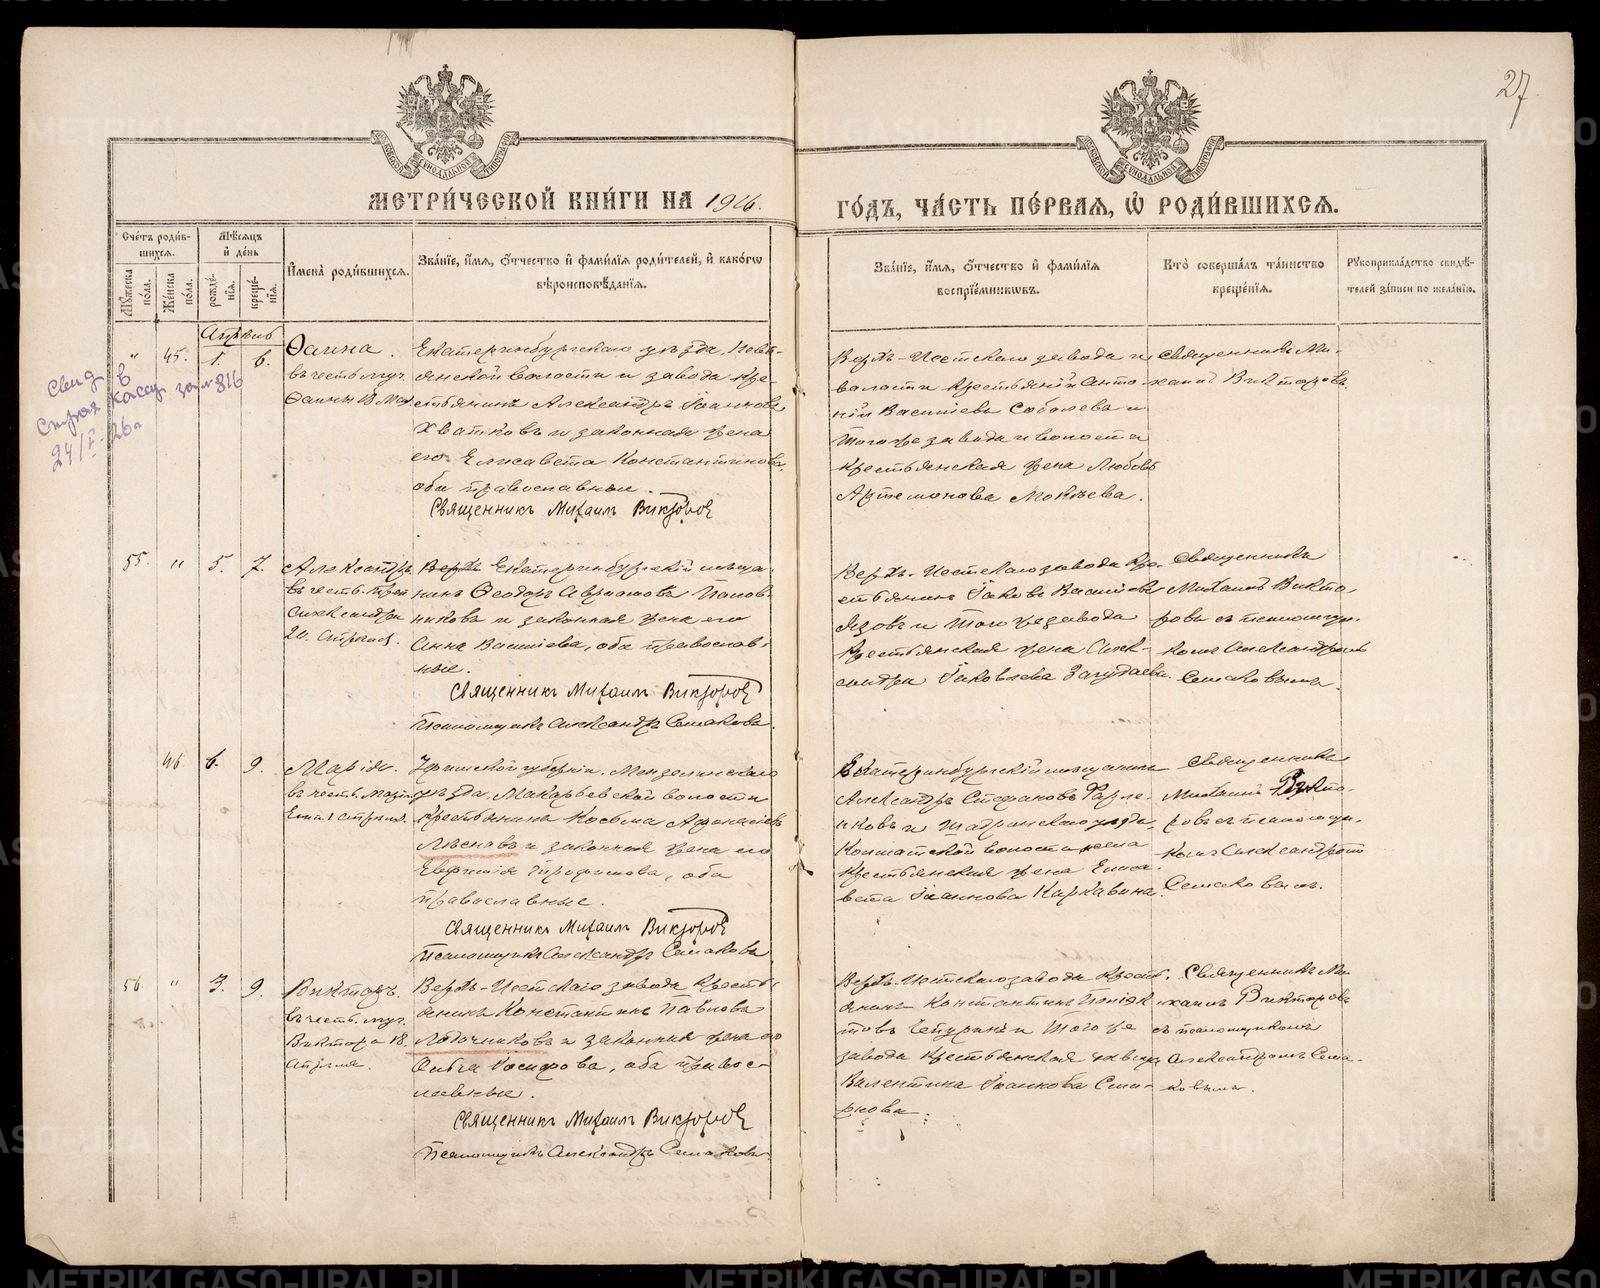 27
МЕТРИ́ЧЕСКОЙ КНИ́ГИ НА 1916.
ГО́ДЪ, ЧА́СТЬ ПЕ́РВАЯ, Ѡ РОДИ́ВШИХСЯ.
Сче́тъ роди́в-
шихся.
Мѣ́сяцъ
и де́нь
Му́жеска по́ла.
Же́нска по́ла.
рожде́-
нїя.
креще́-
нїя.
И҆мена̀ роди́вшихся.
Зва́нїе, и҆́мя, ѻ҆́тчество и҆ фами́лїя роди́телей, и҆ како́гѡ
вѣроисповѣ́данїя.
Зва́нїе, и҆́мя, ѻ҆́тчество и҆ фами́лїя
воспрїе́мникѡвъ.
Кто̀ соверша́лъ та́инство
креще́нїя.
Рꙋкоприкла́дство свидѣ́-
телей за́писи по жела́нїю.
Апрѣль
" 45. 1. 6.
Ѳаина.
въ честь муч.
Ѳаины 18 Мая
Екатеринбургскаго уѣзда, Невь-
янской волости и завода кре-
стьянинъ Александръ Іоанновъ
Хватковъ и законная жена
его Елисавета Константинова,
оба православные.
Священникъ Михаилъ Викторовъ
Верхъ-Исетскаго завода и
волости крестьянинъ Анто-
ній Василіевъ Соболевъ и
того же завода и волости
крестьянская жена Любовь
Артемонова Мокѣева.
Священникъ Ми-
хаилъ Викторовъ
свид в
страх кассу за № 816
24/V-26г
55. " 5. 7.
Александръ
Верхъ Екатеринбургскій мѣща-
нинъ Ѳеодоръ
и законная жена его
Анна Василіева, оба православ-
ные.
Священникъ Михаилъ Викторовъ
Псаломщикъ Александръ Семаковъ.
Верхъ-Исетскаго завода кре-
стьянинъ Іаковъ Василіевъ
и того же завода
крестьянская жена Алек-
сандра Іаковлева
Священникъ
Михаилъ Викто-
ровъ съ псаломщи-
комъ Александромъ
Семаковымъ.
46. 6. 9.
Марія.
въ честь Маріи
Егип. 1 Апрѣля.
Уфимской губерніи, Мензелинскаго
уѣзда, Макарьевской волости
крестьянинъ Косьма Аѳанасіевъ
Лѣсновъ и законная жена его
Евфимія Трофимова, оба
православные.
Священникъ Михаилъ Викторовъ
Псаломщикъ Александръ Семаковъ
Екатеринбургскій мѣщанинъ
Александръ Стефановъ
и Шадринскаго уѣзда,
волости
крестьянская жена Елиса-
вета Іоаннова Каркавина.
Священникъ
Михаилъ Викто-
ровъ съ псаломщи-
комъ Александромъ
Семаковымъ.
56. " 3. 9.
Викторъ.
въ честь муч.
Виктора 18.
Апрѣля.
Верхъ-Исетскаго завода кресть-
янинъ Константинъ Павловъ
Лодочниковъ и законная жена его
Ольга оба правос-
лавные.
Священникъ Михаилъ Викторовъ
Псаломщикъ Александръ Семаковъ.
Верхъ-Исетскаго завода кресть-
янинъ Константинъ
Чепуринъ и того же
завода крестьянская дѣвица
Валентина Іоаннова Сми-
рнова.
Священникъ Ми-
хаилъ Викторовъ
съ псаломщикомъ
Александромъ Сема-
ковымъ.